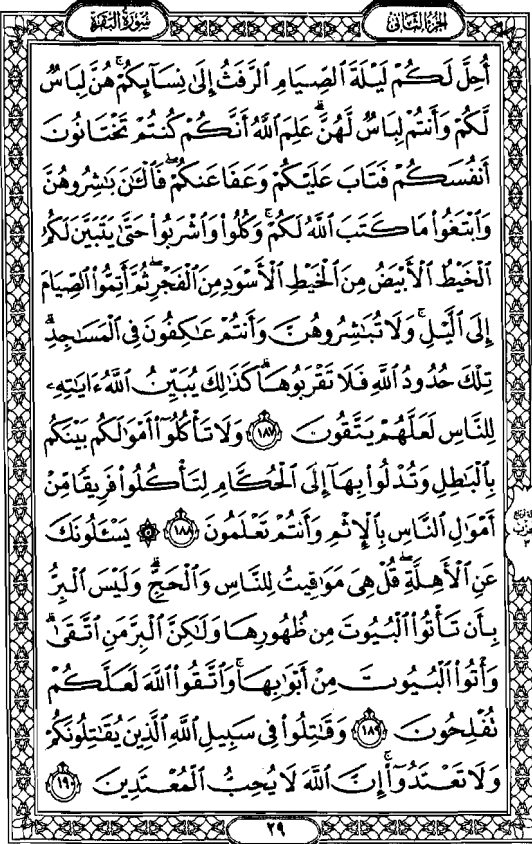 سُورَةُ البَقَرَةِ الجُزءُ الثَّانِي
أُحِلَّ لَكُمْ لَيْلَةَ ٱلصِّيَامِ ٱلرَّفَثُ إِلَىٰ نِسَآئِكُمْ ۚ هُنَّ لِبَاسٌ
لَّكُمْ وَأَنتُمْ لِبَاسٌ لَّهُنَّ ۗ عَلِمَ ٱللَّهُ أَنَّكُمْ كُنتُمْ تَخْتَانُونَ
أَنفُسَكُمْ فَتَابَ عَلَيْكُمْ وَعَفَا عَنكُمْ ۖ فَٱلْـَٰٔنَ بَـٰشِرُوهُنَّ
وَٱبْتَغُوا۟ مَا كَتَبَ ٱللَّهُ لَكُمْ ۚ وَكُلُوا۟ وَٱشْرَبُوا۟ حَتَّىٰ يَتَبَيَّنَ لَكُمُ
ٱلْخَيْطُ ٱلْأَبْيَضُ مِنَ ٱلْخَيْطِ ٱلْأَسْوَدِ مِنَ ٱلْفَجْرِ ۖ ثُمَّ أَتِمُّوا۟ ٱلصِّيَامَ
إِلَى ٱلَّيْلِ ۚ وَلَا تُبَـٰشِرُوهُنَّ وَأَنتُمْ عَـٰكِفُونَ فِى ٱلْمَسَـٰجِدِ ۗ
تِلْكَ حُدُودُ ٱللَّهِ فَلَا تَقْرَبُوهَا ۗ كَذَٰلِكَ يُبَيِّنُ ٱللَّهُ ءَايَـٰتِهِۦ
لِلنَّاسِ لَعَلَّهُمْ يَتَّقُونَ ١٨٧ وَلَا تَأْكُلُوٓا۟ أَمْوَٰلَكُم بَيْنَكُم
بِٱلْبَـٰطِلِ وَتُدْلُوا۟ بِهَآ إِلَى ٱلْحُكَّامِ لِتَأْكُلُوا۟ فَرِيقًا مِّنْ
أَمْوَٰلِ ٱلنَّاسِ بِٱلْإِثْمِ وَأَنتُمْ تَعْلَمُونَ ١٨٨ ۞ يَسْـَٔلُونَكَ
عَنِ ٱلْأَهِلَّةِ ۖ قُلْ هِىَ مَوَٰقِيتُ لِلنَّاسِ وَٱلْحَجِّ ۗ وَلَيْسَ ٱلْبِرُّ
بِأَن تَأْتُوا۟ ٱلْبُيُوتَ مِن ظُهُورِهَا وَلَـٰكِنَّ ٱلْبِرَّ مَنِ ٱتَّقَىٰ ۗ
وَأْتُوا۟ ٱلْبُيُوتَ مِنْ أَبْوَٰبِهَا ۚ وَٱتَّقُوا۟ ٱللَّهَ لَعَلَّكُمْ
تُفْلِحُونَ ١٨٩ وَقَـٰتِلُوا۟ فِى سَبِيلِ ٱللَّهِ ٱلَّذِينَ يُقَـٰتِلُونَكُمْ
وَلَا تَعْتَدُوٓا۟ ۚ إِنَّ ٱللَّهَ لَا يُحِبُّ ٱلْمُعْتَدِينَ ١٩٠
٢٩